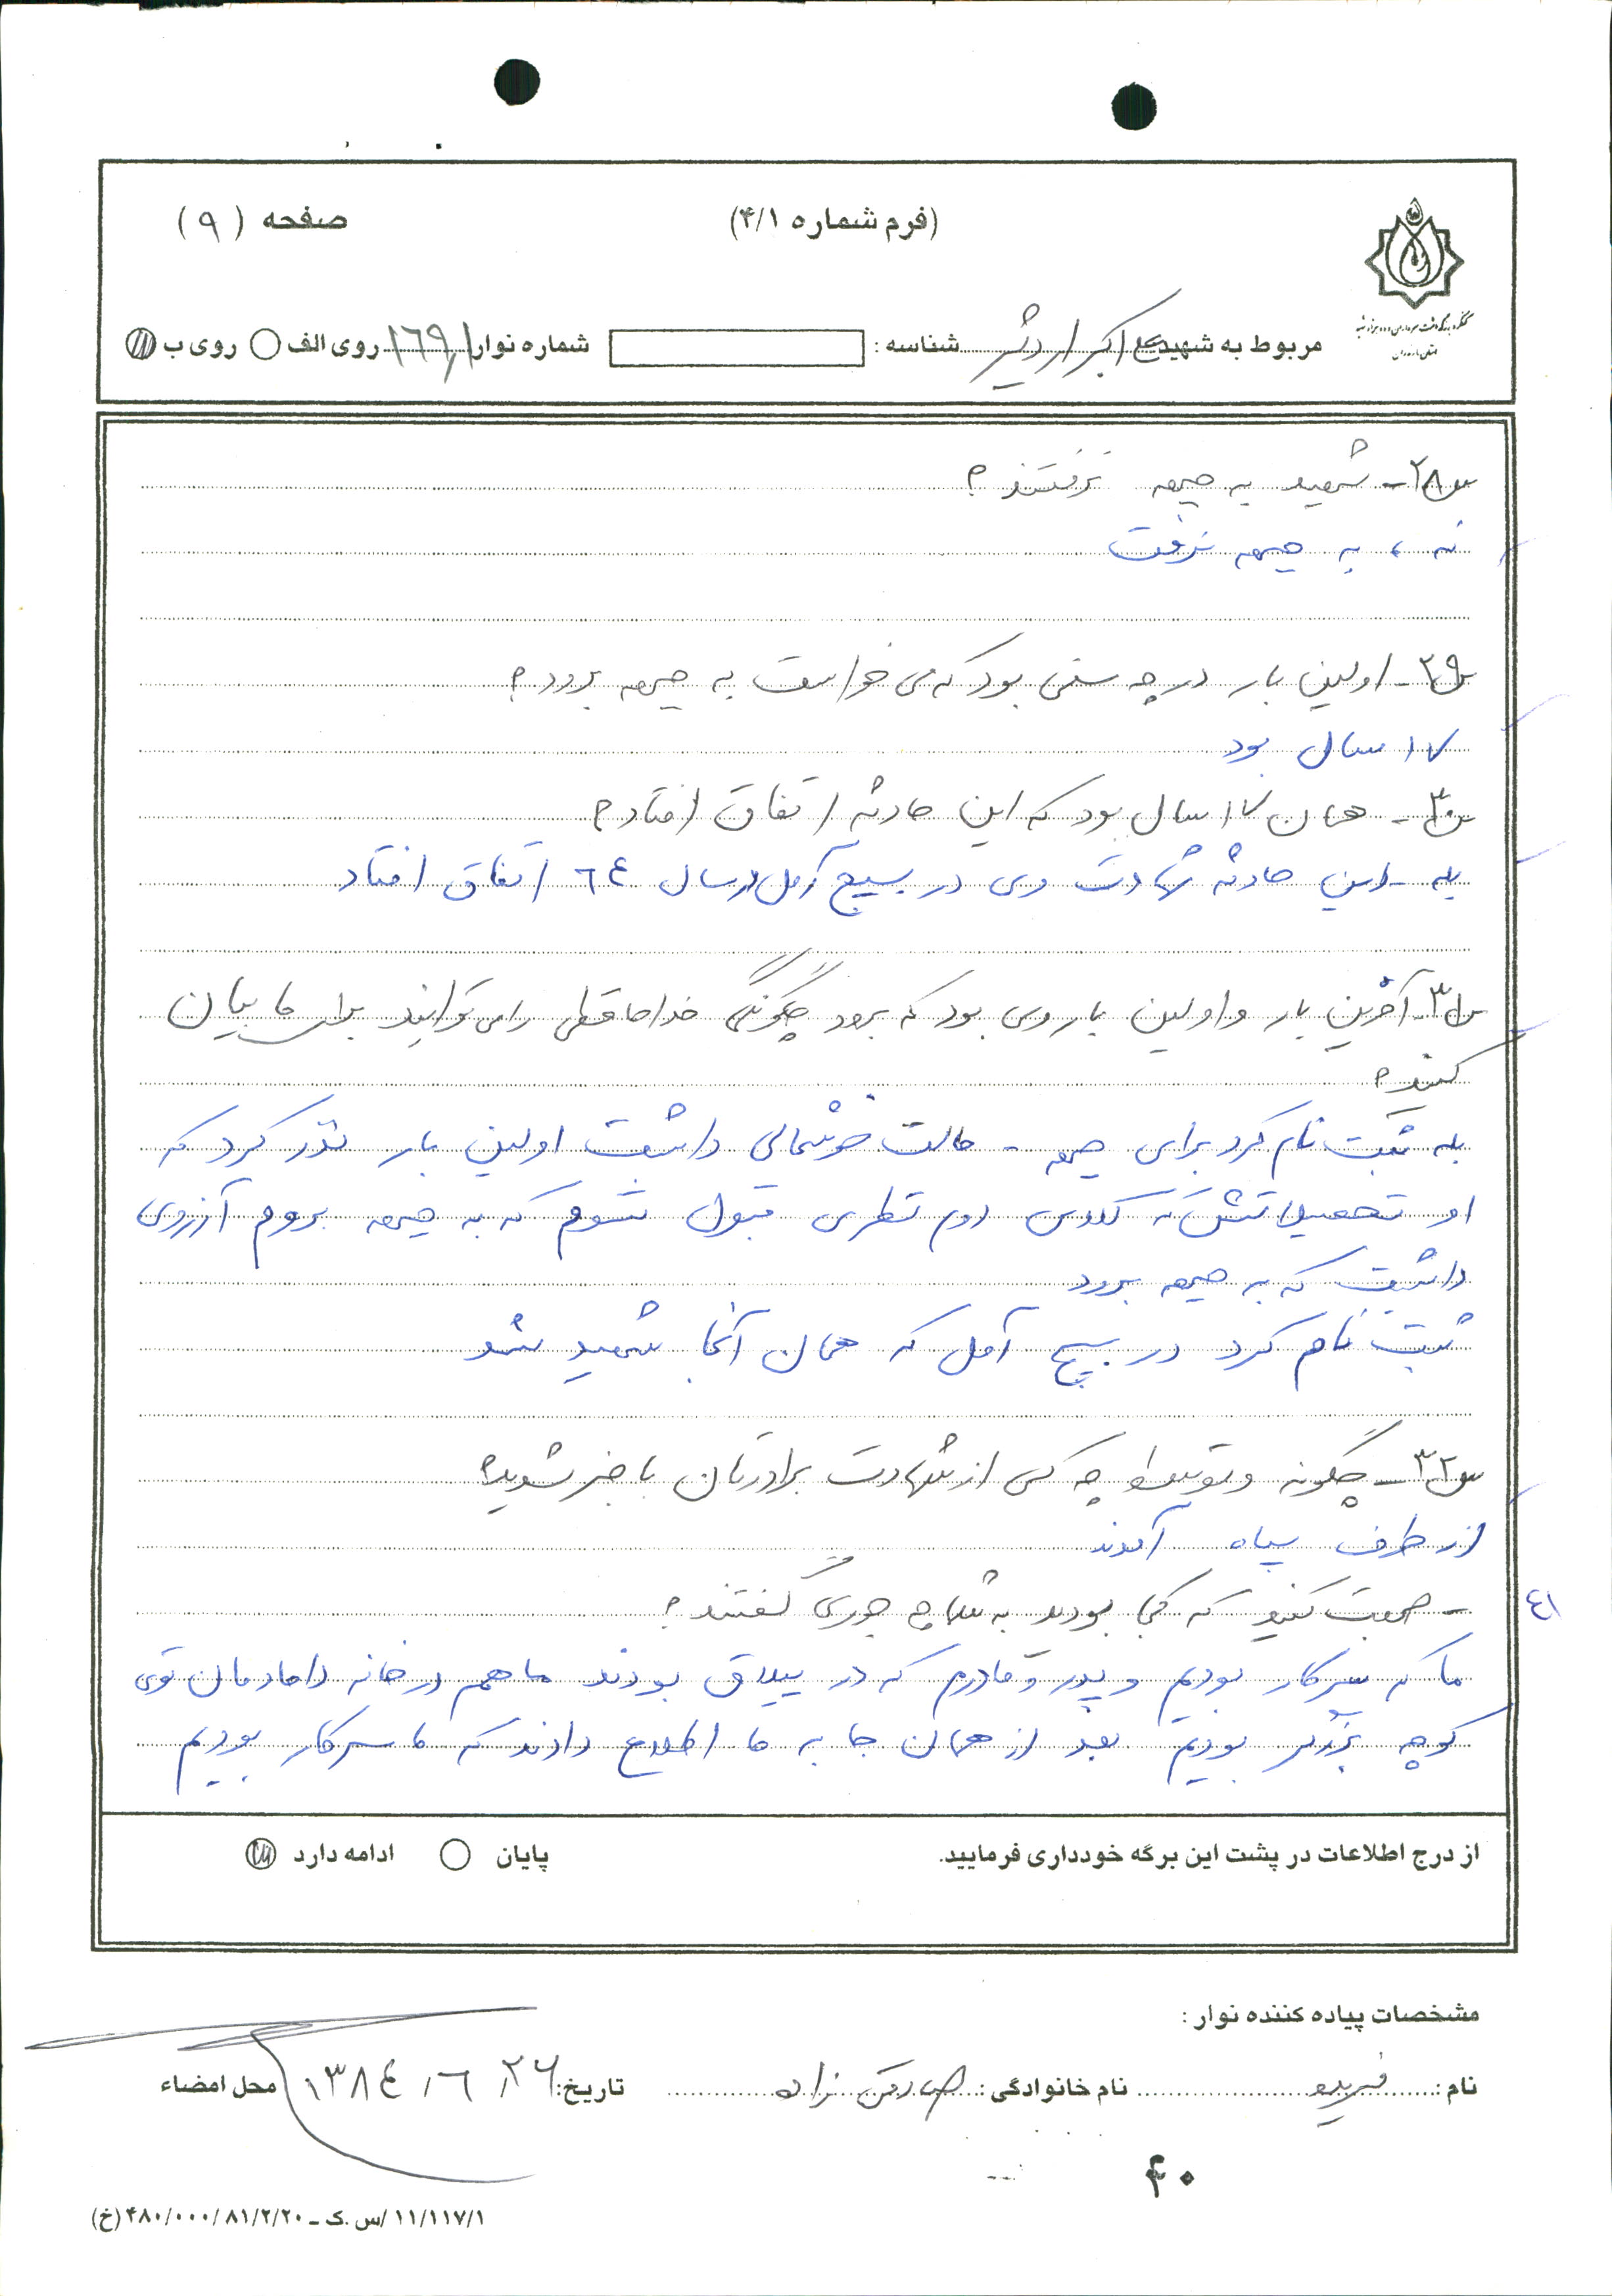 (فرم شماره ۴/۱)
صفحه (۹)
کنگره بزرگداشت سرداران و ده هزار شهید
استان مازندران
مربوط به شهید: علی اکبر اردشیر شناسه: شماره نوار ۱۶۹۱ روی الف روی ب
س۲۸- شهید به جبهه نرفتند؟
نه، به جبهه نرفت
س۲۹- اولین بار در چه سنی بود که می خواست به جبهه برود؟
۱۷ سال بود
س۳۰- همان ۱۷ سال بود که این حادثه اتفاق افتاد؟
بله - این حادثه شهادت وی در بسیج آمل در سال ٦٤ اتفاق افتاد
س۳۱- آخرین بار و اولین بار وی بود که برود چگونگی خداحافظی را می توانید برای ما بیان
کنید؟
بله ثبت نام کرد برای جبهه - حالت خوشحالی داشت اولین بار نذر کرد که
او تحصیلاتش که کلاس دوم نظری قبول شوم که به جبهه بروم آرزوی
داشت که به جبهه برود
ثبت نام کرد در بسیج آمل که همان آنجا شهید شد
س۳۲- چگونه و توسط چه کسی از شهادت برادرتان با خبر شوید؟
از طرف سپاه آمدند
- صحبت کنید که کجا بودید به شما چه جوری گفتند؟
٤١
ما که سرکار بودیم و پدر و مادرم که در ییلاق بودند ما هم در خانه دامادمان توی
کوچه برزگر بودیم بعد از همان جا به ما اطلاع دادند که ما سرکار بودیم
از درج اطلاعات در پشت این برگه خودداری فرمایید. پایان ادامه دارد
مشخصات پیاده کننده نوار:
نام: نام خانوادگی: صادق نژاد تاریخ: ۱۳۸٤/٦/۲۶ محل امضاء
۴۰
۱۱/۱۱۷/۱/س.ک - ۴۸۰/۰۰۰/۸۱/۲/۲۰ (خ)